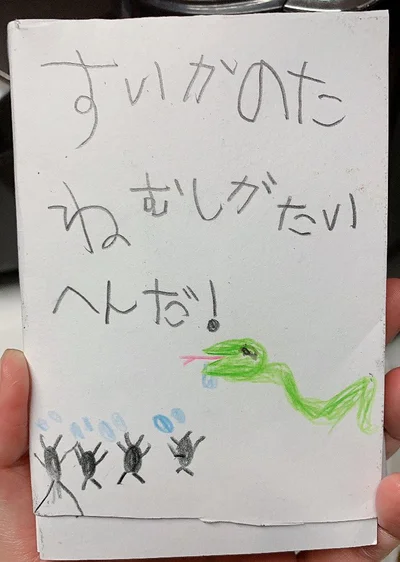 すいかのた
ねむしがたい
へんだ!